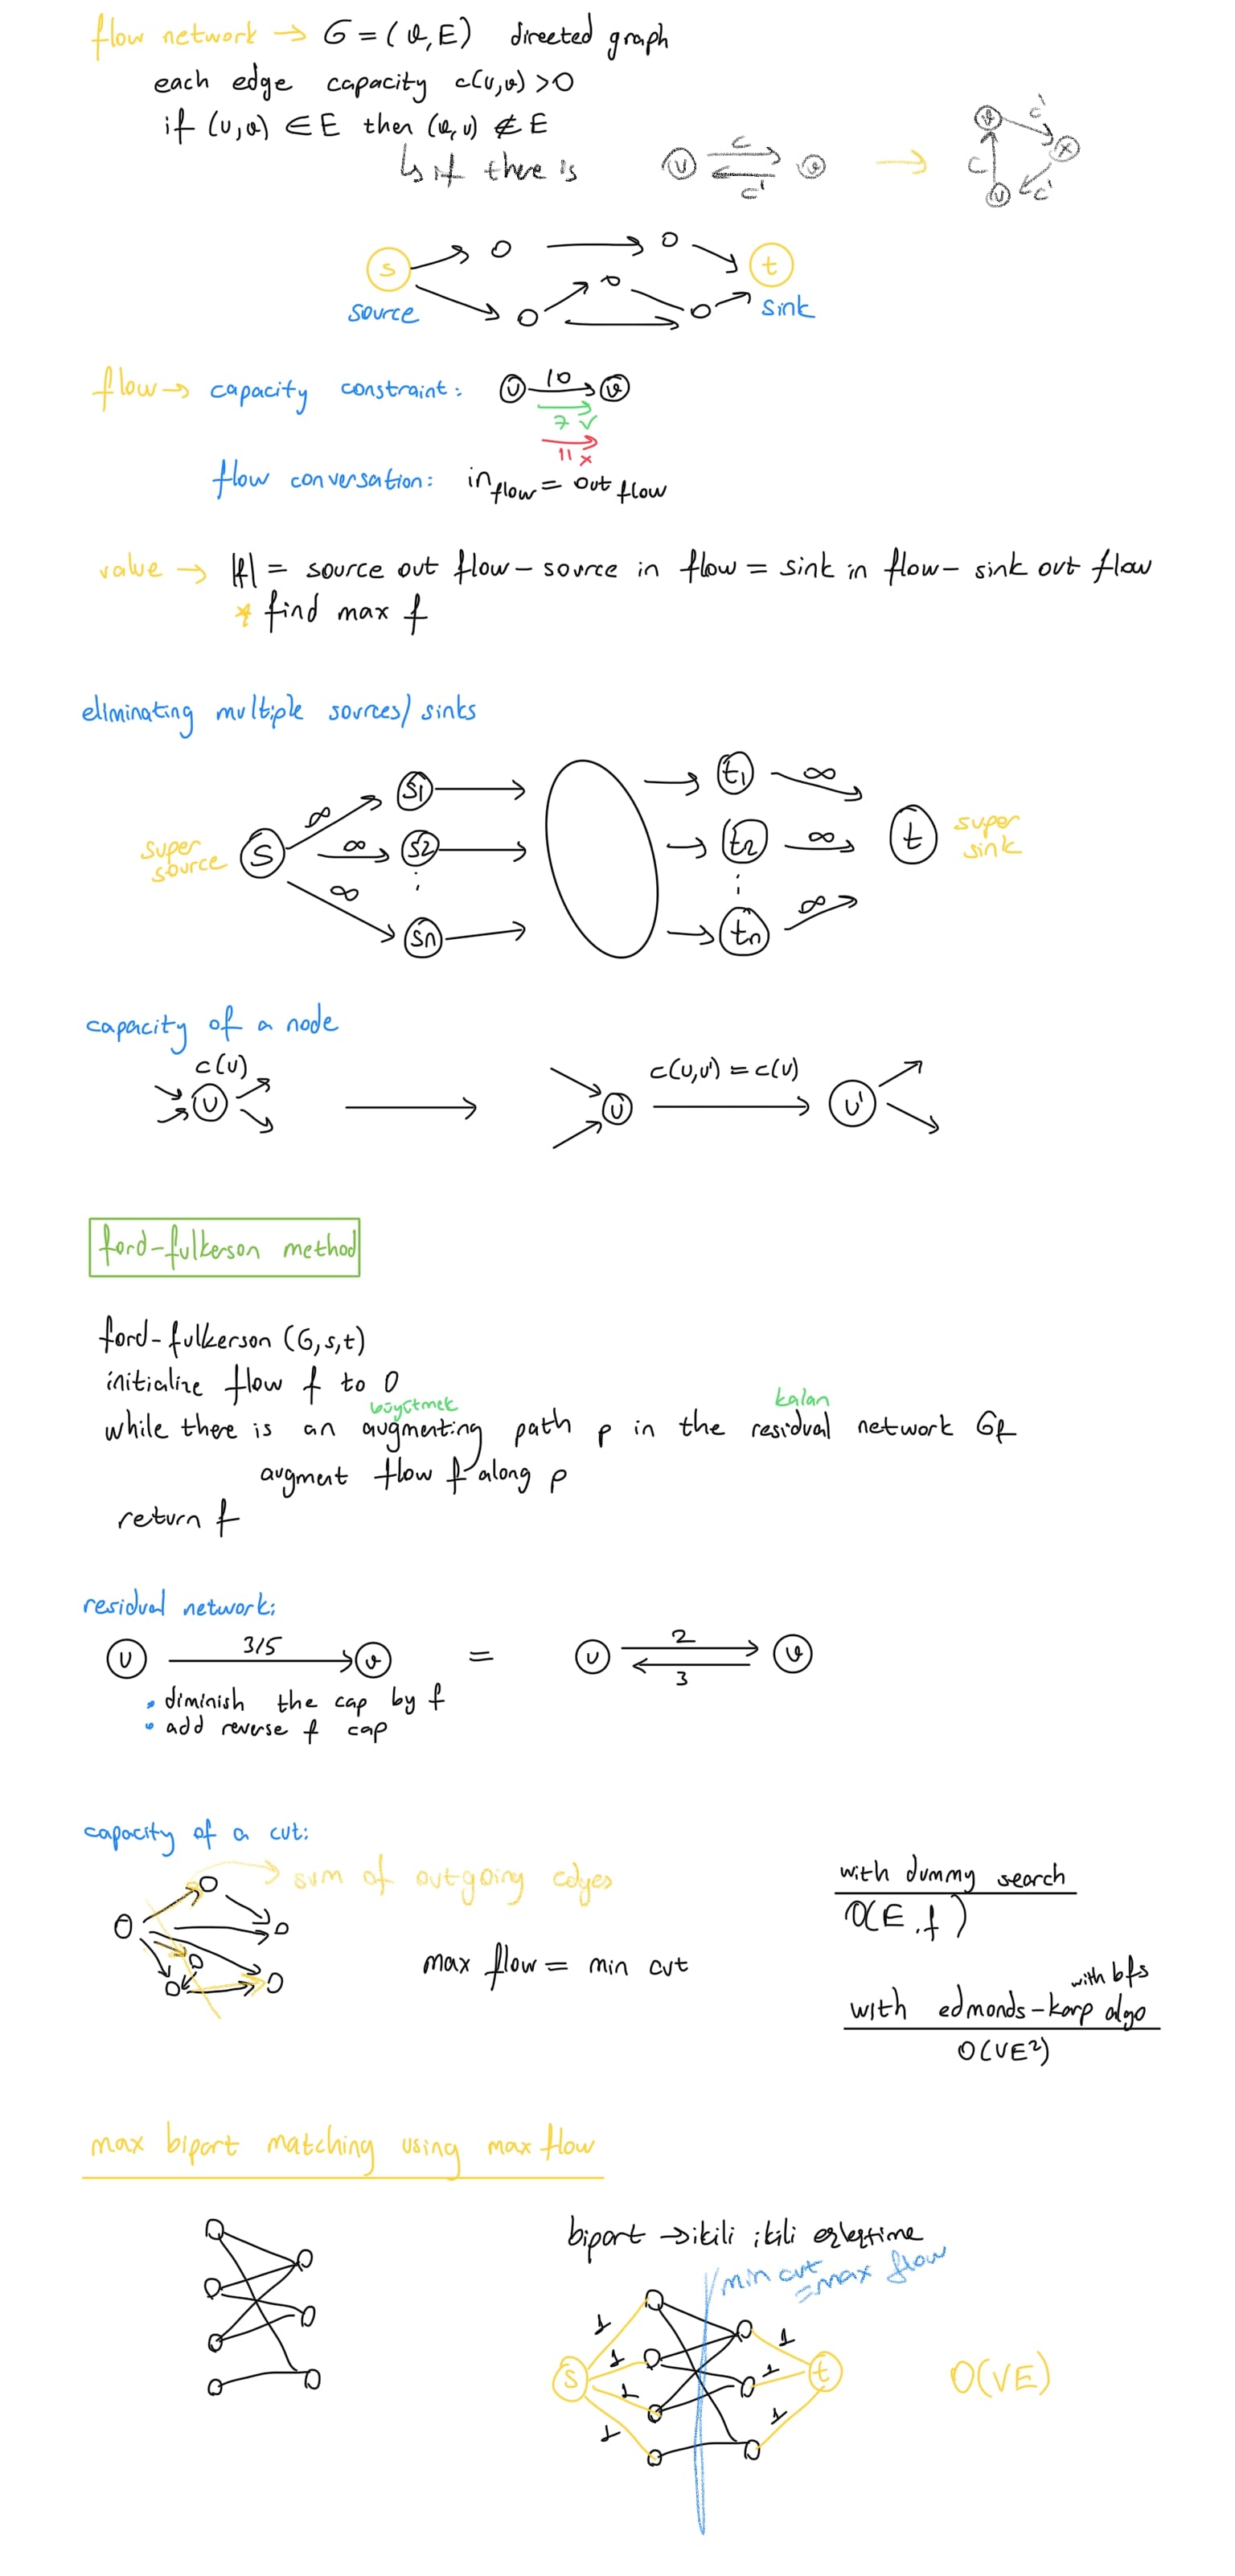 flow network → G = (V, E) directed graph
each edge capacity c(u,v) > 0
if (u,v) ∈ E then (v,u) ∉ E
↳ if there is u c v c' → v c' x c u c'
s t
source sink
flow → capacity constraint: u 10 v
7 ✓
11 x
flow conversation: in flow = out flow
value → |f| = source out flow - source in flow = sink in flow - sink out flow
* find max f
eliminating multiple sources/sinks
super source s ∞ s1 t1 ∞ t super sink
∞ s2 t2 ∞
∞ sn tn ∞
capacity of a node
c(u) c(u,u') = c(u)
u → u u'
ford-fulkerson method
ford-fulkerson (G,s,t)
initialize flow f to 0
büyütmek kalan
while there is an augmenting path p in the residual network Gf
augment flow f along p
return f
residual network:
u 3/5 v = u 2 v
3
• diminish the cap by f
• add reverse f cap
capacity of a cut:
→ sum of outgoing edges
max flow = min cut
with dummy search
O(E.f)
with bfs
with edmonds-karp algo
O(VE²)
max bipart matching using max flow
bipart → ikili ikili eşleştime
min cut
= max flow
1 1
1 1
s t
1 1
1
O(VE)